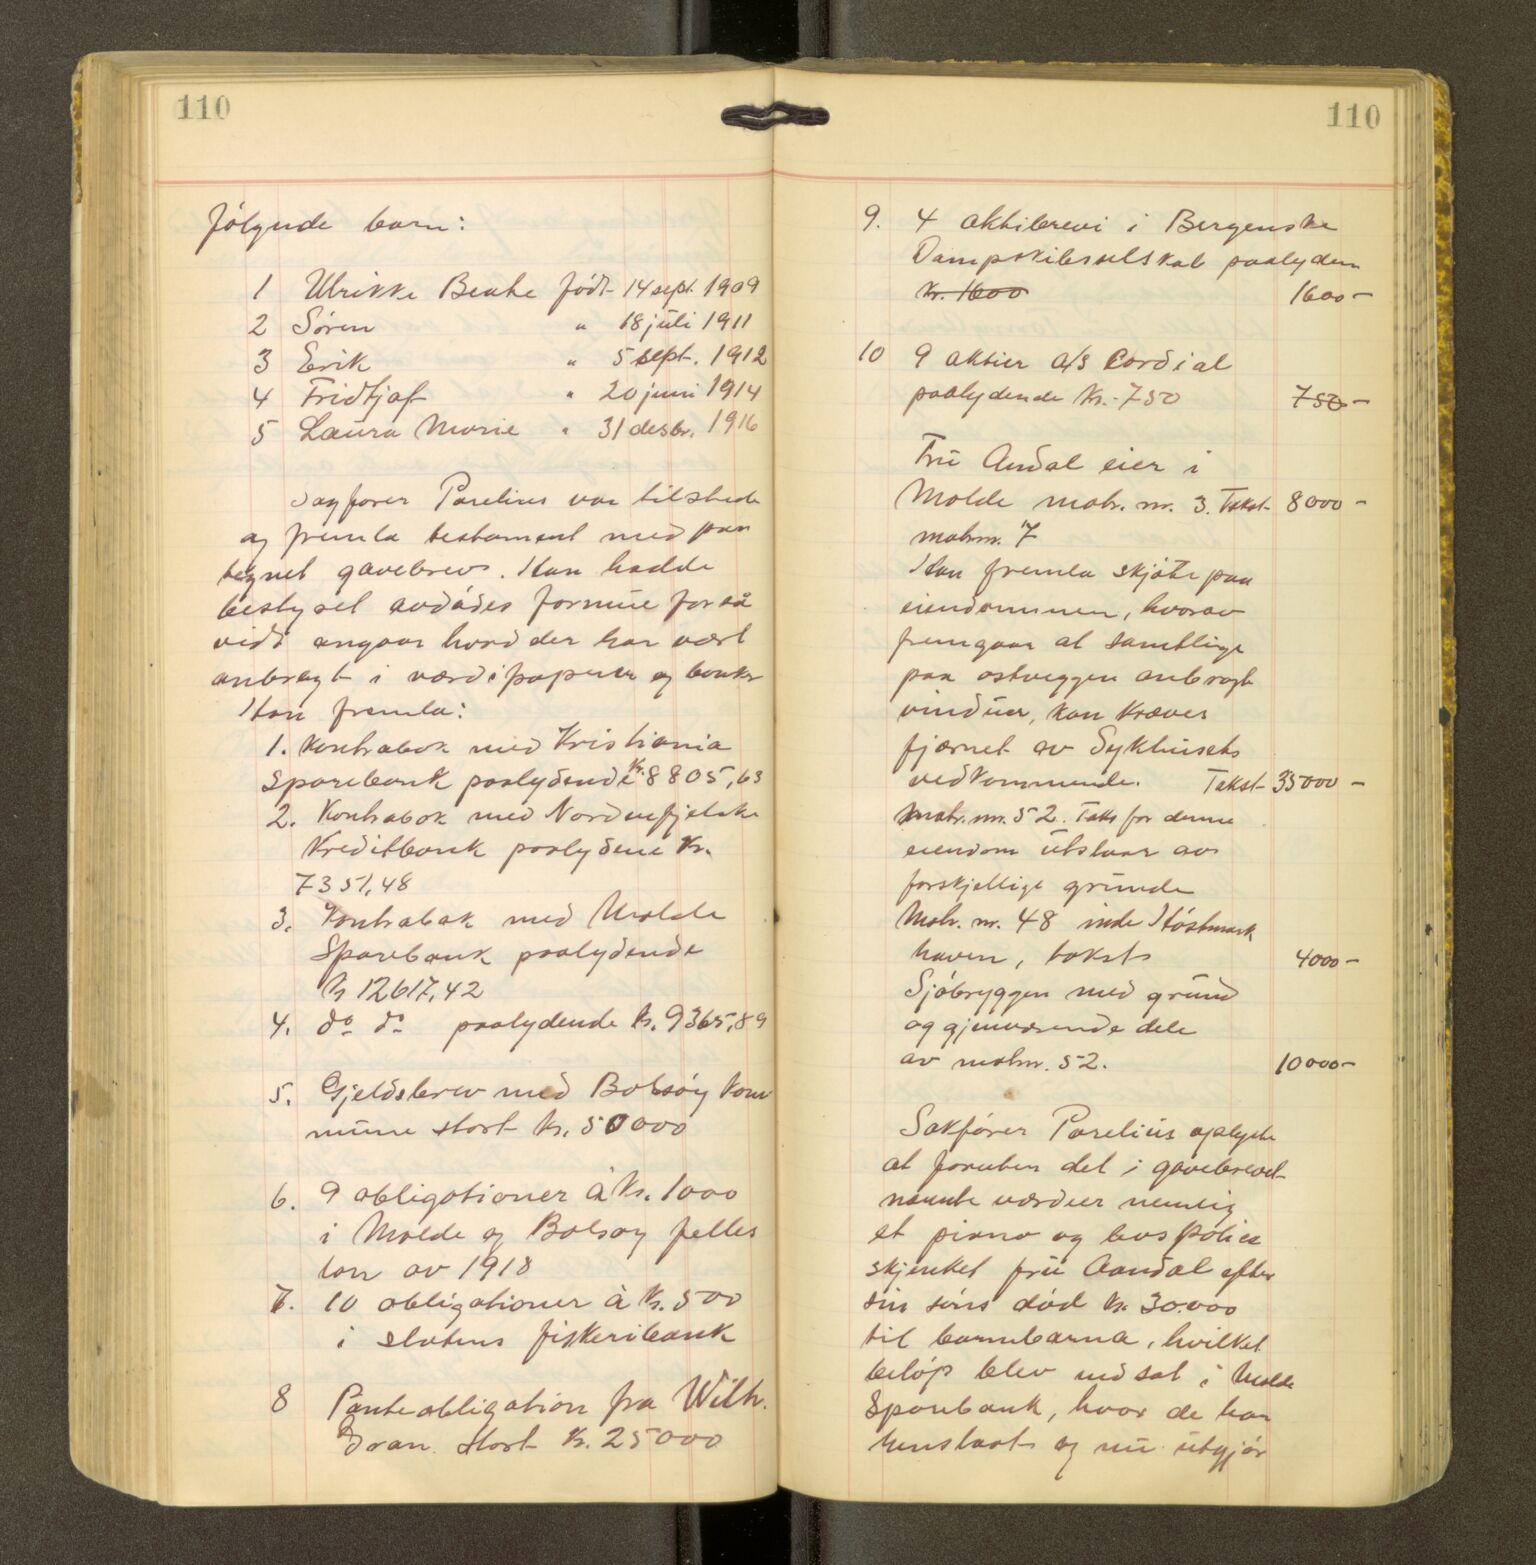 110
følgende barn:
1 Ulrikke Beate født 14 sept. 1909
2 Søren " 18 juli 1911
3 Erik " 5 sept. 1912
4 Fridtjof " 20 juni 1914
5 Laura Marie " 31 desbr. 1916
Sagfører Parelius var tilstede
og fremla testament med paa
tegnet gavebrev. Han hadde
bestyret avdødes formue forså
vidt angaar hvad der har vært
anbragt i værdipapirer og banker
Han fremla:
1. Kontrabok med Kristiania
Sparebank paalydende kr. 8805,63
2. Kontrabok med Nordenfjelske
Kreditbank paalydene kr.
7351,48
3. Kontrabok med Molde
Sparebank paalydende
kr 12617,42
4. do do paalydende kr. 9365,89
5. Gjeldsbrev med Bolsøy kom
mune stort kr. 50000
6. 9 obligationer à kr. 1000
i Molde og Bolsøy felles
lån av 1918
7. 10 obligationer à kr. 500
i statens fiskeribank
8 Panteobligation fra Wilh.
Dran. stort kr. 25000
110
9. 4 aktibrevi i Bergenske
Dampskibsselskab paalyden
kr. 1600 1600 -
10 9 aktier a/s Cordial
paalydende kr. 750 750 -
Fru Andal eier i
Molde matr. nr. 3. Takst 8000 -
matrnr. 17
Han fremla skjøte paa
eiendommen, hvorav
fremgaar at samtlige
paa østveggen anbragte
vinduer, kan kræves
fjærnet av Sykhusets
vedkommende. Takst 35000 -
matr. nr. 52. Takst for denne
eiendom utstaar av
forskjellige grunde
Matr. nr. 48 inde Høstmark
haven, takst 4000 -
Sjøbryggen med grund
og gjenværende dele
av matrnr. 52. 10000 -
Sakfører Parelius oplyste
at foruten det i gavebrevet
nævnte værdier nemlig
et piano og livspolise
skjenket fru Aandal efter
sin søns død kr. 30.000
til barnebarna, hvilket
beløp blev indsat i Molde
Sparebank, hvor de har
henstaat og nu utgjør